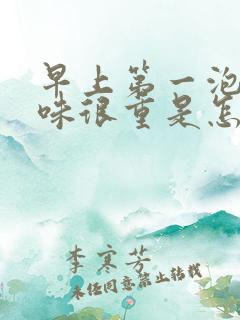 早上第一泡
味很重是怎
李寒芳
未经同意禁止转载